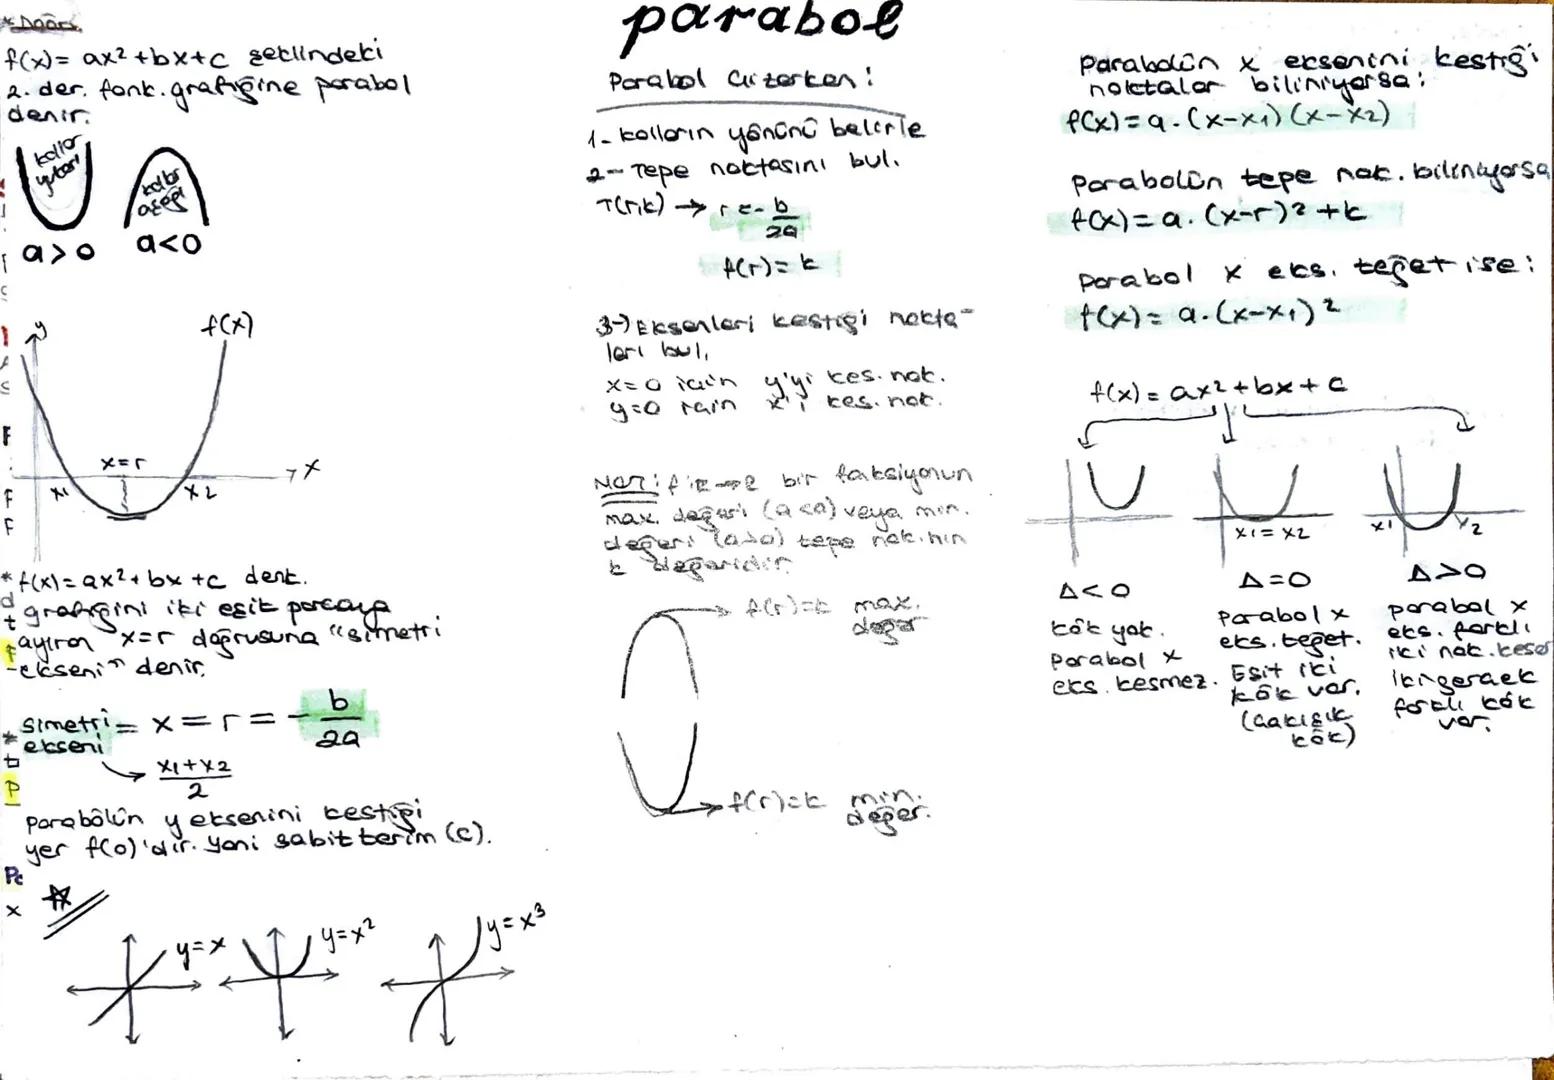 parabol
f(x) = ax² + bx + c şeklindeki
2. der. fonk. grafiğine parabol
denir.
kollar
yukarı
kollar
aşağı
a > 0
a < 0
y
f(x)
x = r
x
x₁
x₂
* f(x) = ax² + bx + c denk.
grafiğini iki eşit parçaya
ayıran x = r doğrusuna "simetri
ekseni" denir.
simetri
ekseni = x = r = - b/2a
x₁ + x₂
2
parabôlün y eksenini kestiği
yer f(0)'dır. yani sabit terim (c).
y = x
y = x²
y = x³
Parabol Çizerken!
1- kolların yönünü belirle
2- Tepe noktasını bul.
T(r,k) → r = - b/2a
f(r) = k
3-) Eksenleri kestiği nokta-
ları bul.
x = 0 için y'yi kes. nok.
y = 0 için x'i kes. nok.
NOT: f: R → R bir fonksiyonun
max. değeri (a<0) veya min.
değeri (a>0) tepe nok.nın
k değeridir.
f(r) = k max.
değer
f(r) = k min.
değer.
Parabolün x eksenini kestiği
noktalar biliniyorsa:
f(x) = a . (x - x₁) (x - x₂)
Parabolün tepe nok. biliniyorsa
f(x) = a . (x - r)² + k
Parabol x eks. teğet ise:
f(x) = a . (x - x₁)²
f(x) = ax² + bx + c
x₁ = x₂
x₁
x₂
Δ < 0
kök yok.
Parabol x
eks. kesmez.
Δ = 0
Parabol x
eks. teğet.
Eşit iki
kök var.
(Çakışık
kök)
Δ > 0
parabol x
eks. farklı
iki nok. keser
iki gerçek
farklı kök
var.